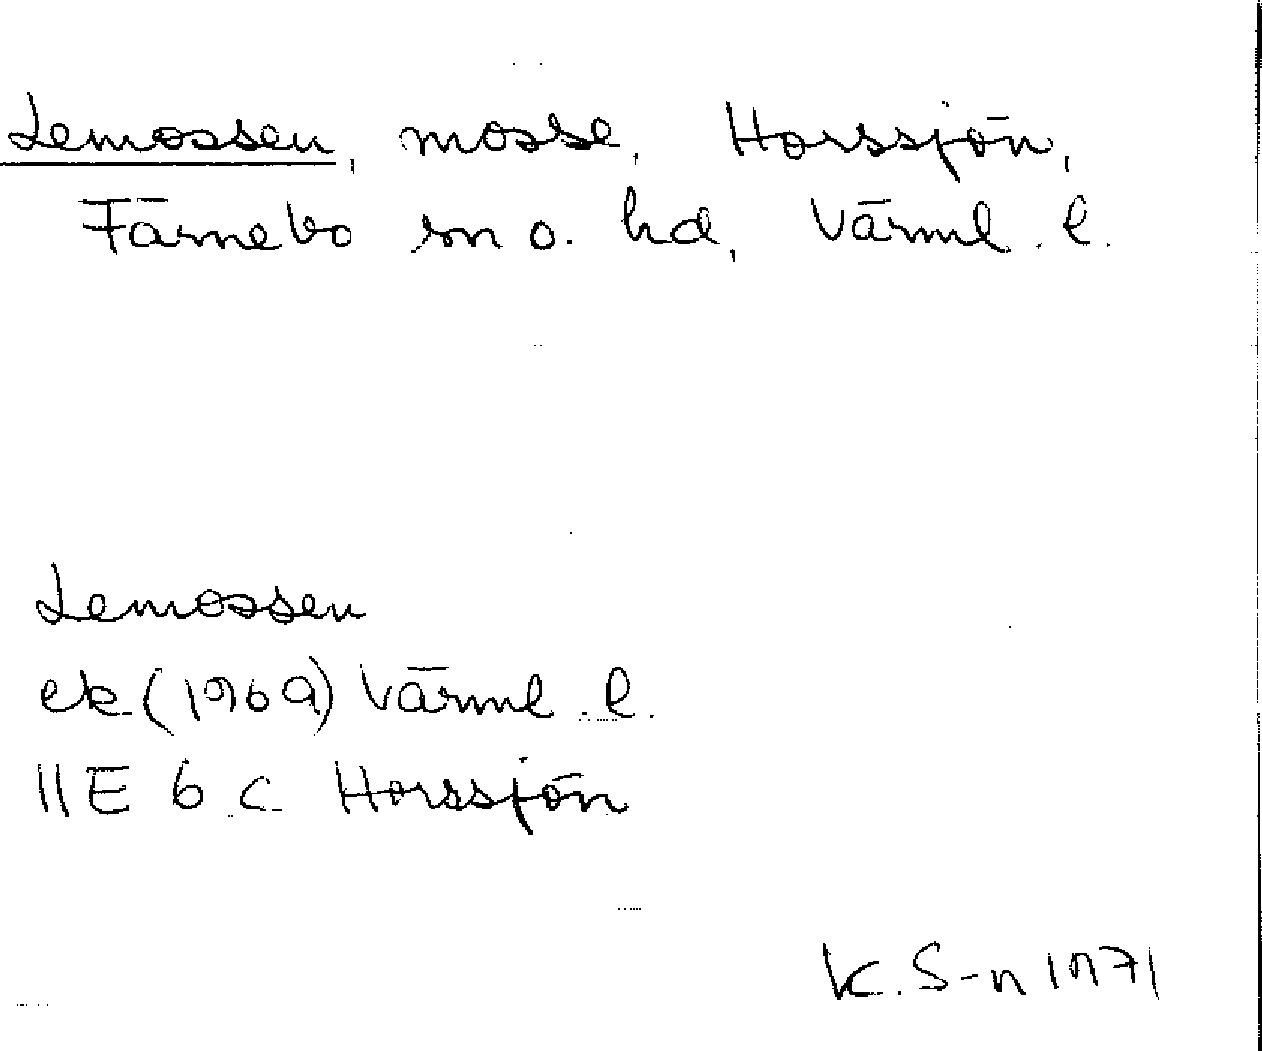 Lemossen, mosse, Horssjön,
Färnebo sn o. hd, Värml. l.
Lemossen
ek (1969) Värml. l.
11E 6 c Horssjön
K. S-n 1971